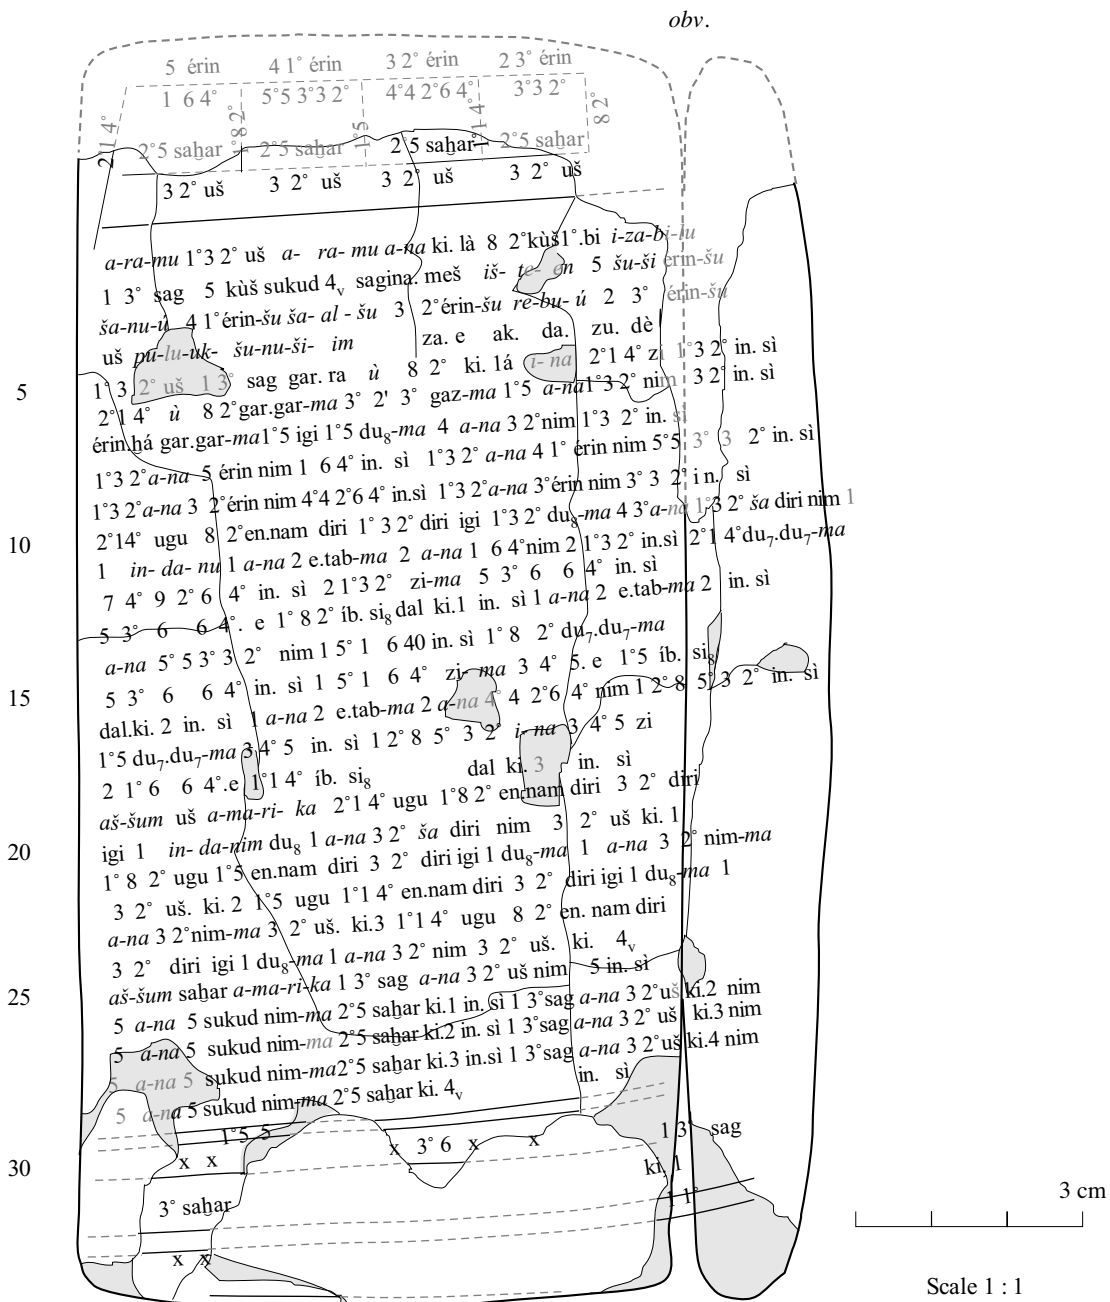 obv.
5 érin 4 1° érin 3 2° érin 2 3° érin
1 6 4° 5°5 3°3 2° 4°4 2°6 4° 3°3 2°
2°1 4° 1°8 2° 1°5 1°1 4° 8 2°
2°5 saḫar 2°5 saḫar 2°5 saḫar 2°5 saḫar
3 2° uš 3 2° uš 3 2° uš 3 2° uš
a-ra-mu 1°3 2° uš a- ra- mu a-na ki. là 8 2°kùš1°.bi i-za-bi-lu
1 3° sag 5 kùš sukud 4v sagina. meš iš- te- en 5 šu-ši érin-šu
ša-nu-ú 4 1°érin-šu ša- al - šu 3 2°érin-šu re-bu- ú 2 3° érin-šu
uš pu-lu-uk- šu-nu-ši- im za. e ak. da. zu. dè
5 1°3 2° uš 1 3° sag gar. ra ù 8 2° ki. lá i- na 2°1 4° zi 1°3 2° in. sì
2°1 4° ù 8 2°gar.gar-ma 3° 2' 3° gaz-ma 1°5 a-na1°3 2° nim 3 2° in. sì
érin.ḫá gar.gar-ma1°5 igi 1°5 du8-ma 4 a-na 3 2°nim 1°3 2° in. sì
1°3 2°a-na 5 érin nim 1 6 4° in. sì 1°3 2° a-na 4 1° érin nim 5°5 3° 3 2° in. sì
1°3 2°a-na 3 2°érin nim 4°4 2°6 4° in.sì 1°3 2°a-na 3°érin nim 3° 3 2° in. sì
10 2°14° ugu 8 2°en.nam diri 1° 3 2° diri igi 1°3 2° du8-ma 4 3°a-na 1°3 2° ša diri nim 1
1 in- da- nu 1 a-na 2 e.tab-ma 2 a-na 1 6 4°nim 2 1°3 2° in.sì 2°1 4°du7.du7-ma
7 4° 9 2° 6 4° in. sì 2 1°3 2° zi-ma 5 3° 6 6 4° in. sì
5 3° 6 6 4°. e 1° 8 2° íb. si8 dal ki.1 in. sì 1 a-na 2 e.tab-ma 2 in. sì
a-na 5° 5 3° 3 2° nim 1 5° 1 6 40 in. sì 1° 8 2° du7.du7-ma
15 5 3° 6 6 4° in. sì 1 5° 1 6 4° zi- ma 3 4° 5. e 1°5 íb. si8
dal.ki. 2 in. sì 1 a-na 2 e.tab-ma 2 a-na 4° 4 2°6 4° nim 1 2° 8 5° 3 2° in. sì
1°5 du7.du7-ma 3 4° 5 in. sì 1 2° 8 5° 3 2° i- na 3 4° 5 zi
2 1° 6 6 4°.e 1°1 4° íb. si8 dal ki. 3 in. sì
aš-šum uš a-ma-ri- ka 2°1 4° ugu 1°8 2° en.nam diri 3 2° diri
20 igi 1 in- da-nim du8 1 a-na 3 2° ša diri nim 3 2° uš ki. 1
1° 8 2° ugu 1°5 en.nam diri 3 2° diri igi 1 du8-ma 1 a-na 3 2° nim-ma
3 2° uš. ki. 2 1°5 ugu 1°1 4° en.nam diri 3 2° diri igi 1 du8-ma 1
a-na 3 2°nim-ma 3 2° uš. ki.3 1°1 4° ugu 8 2° en. nam diri
3 2° diri igi 1 du8-ma 1 a-na 3 2° nim 3 2° uš. ki. 4v
25 aš-šum saḫar a-ma-ri-ka 1 3° sag a-na 3 2° uš nim 5 in. sì
5 a-na 5 sukud nim-ma 2°5 saḫar ki.1 in. sì 1 3°sag a-na 3 2°uš ki.2 nim
5 a-na 5 sukud nim-ma 2°5 saḫar ki.2 in. sì 1 3°sag a-na 3 2° uš ki.3 nim
5 a-na 5 sukud nim-ma2°5 saḫar ki.3 in.sì 1 3°sag a-na 3 2°uš ki.4 nim
5 a-na 5 sukud nim-ma 2°5 saḫar ki. 4v in. sì
1°5 5 1 3° sag
30 x x x 3° 6 x x ki, 1
3° saḫar 1 1°
x x
3 cm
Scale 1 : 1